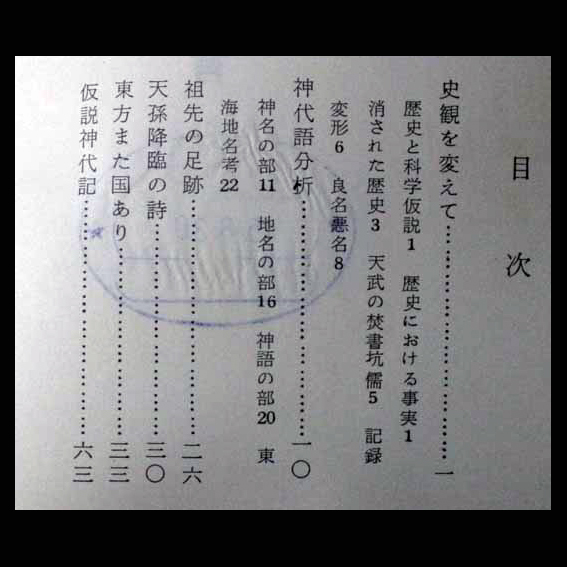 目次
史観を変えて……………………………一
歴史と科学仮説1　歴史における事実1
消された歴史3　天武の焚書坑儒5　記録
変形6　良名悪名8
神代語分析……………………………一〇
神名の部11　地名の部16　神語の部20　東
海地名考22
祖先の足跡……………………………二六
天孫降臨の詩……………………………三〇
東方また国あり……………………………三三
仮説神代記……………………………六三